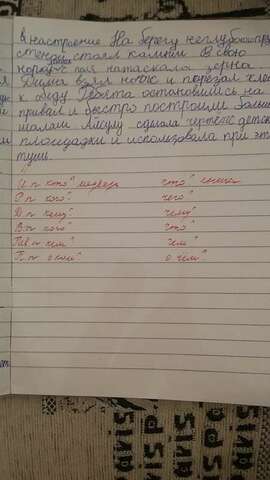 настроение. На берегу неглубокого
стоял камыш. В свою
норку с поля натаскала зерна
Дима взял нож и порезал хлеб
к обеду. Гости остановились на
привал и быстро построили большой
шалаш. Алсу сделала чертёж детской
площадки и использовала при этом
тушь.
И.п. кто? что?
Р.п. кого? чего?
Д.п. кому? чему?
В.п. кого? что?
Тв.п. кем? чем?
П.п. о ком? о чём?